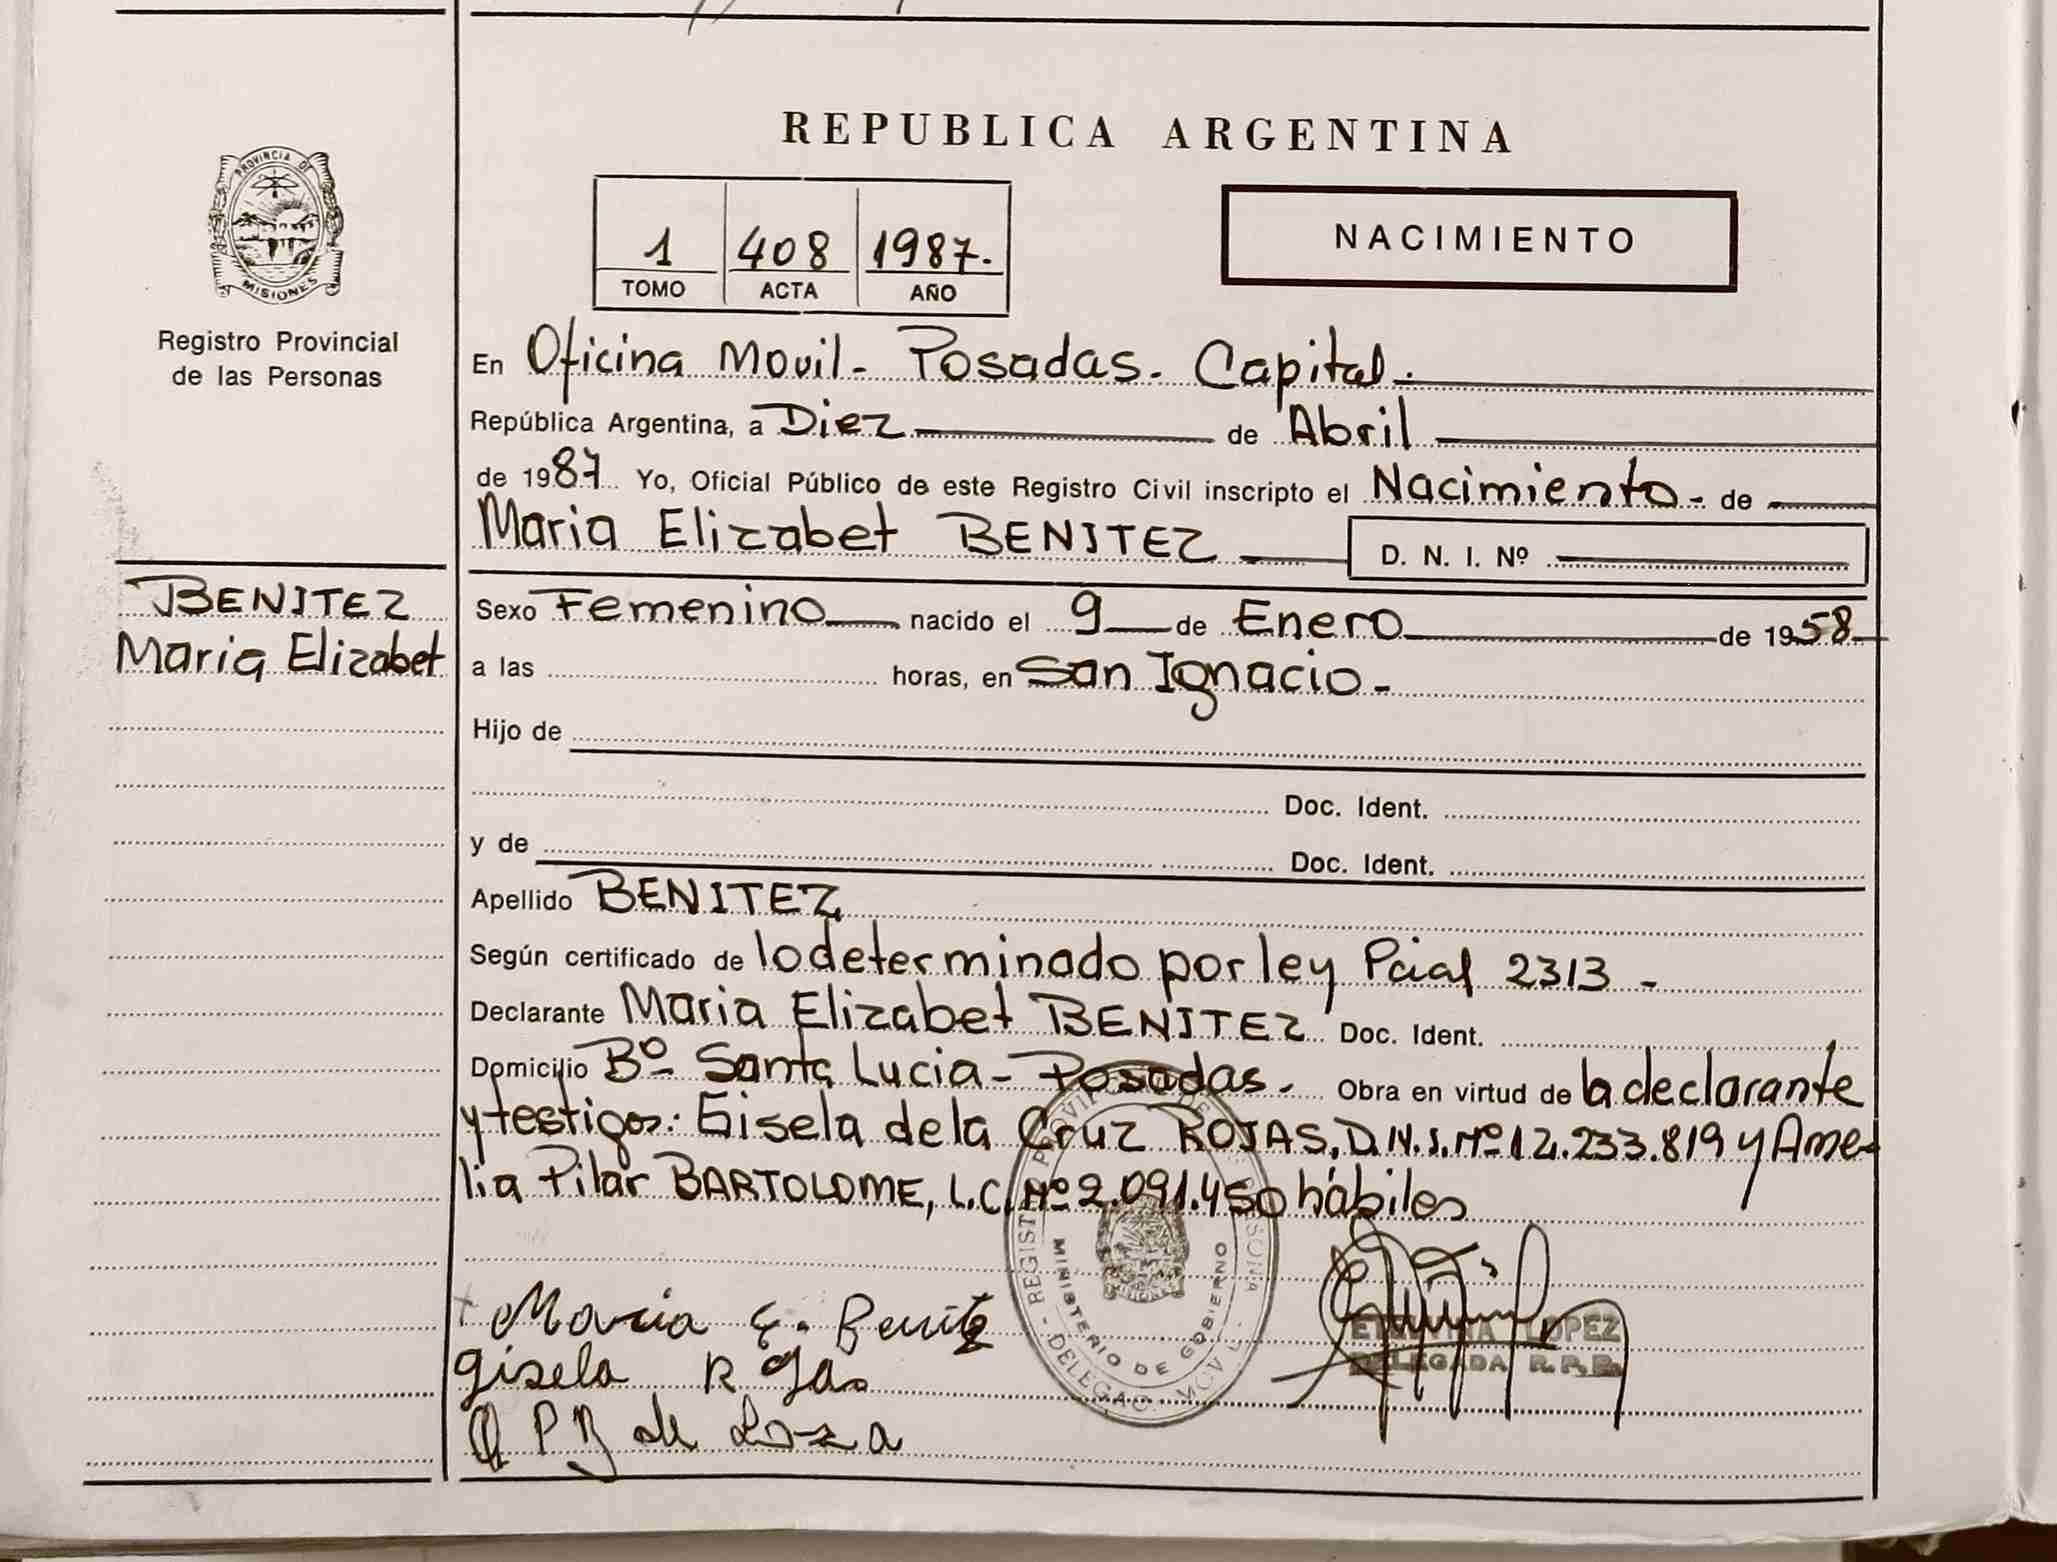 REPUBLICA ARGENTINA
PROVINCIA DE
MISIONES
Registro Provincial
de las Personas
1 408 1987.
TOMO ACTA AÑO
NACIMIENTO
En Oficina Movil - Posadas - Capital.
República Argentina, a Diez de Abril
de 1987 Yo, Oficial Público de este Registro Civil inscripto el Nacimiento - de
Maria Elizabet BENITEZ D. N. I. Nº
BENITEZ
Maria Elizabet
Sexo Femenino nacido el 9 de Enero de 1958
a las horas, en San Ignacio -
Hijo de
Doc. Ident.
y de Doc. Ident.
Apellido BENITEZ
Según certificado de lo determinado por ley Pcial 2313 -
Declarante Maria Elizabet BENITEZ Doc. Ident.
Domicilio Bº Santa Lucia - Posadas. Obra en virtud de la declarante
y testigos: Gisela de la Cruz ROJAS, D.N.I. Nº 12.233.819 y Ame-
lia Pilar BARTOLOME, L.C. Nº 2.091.450 hábiles
MINISTERIO DE GOBIERNO
Maria E. Benitez
Gisela Rojas
P B de Loza
LOPEZ
DELEGADA R.P.P.